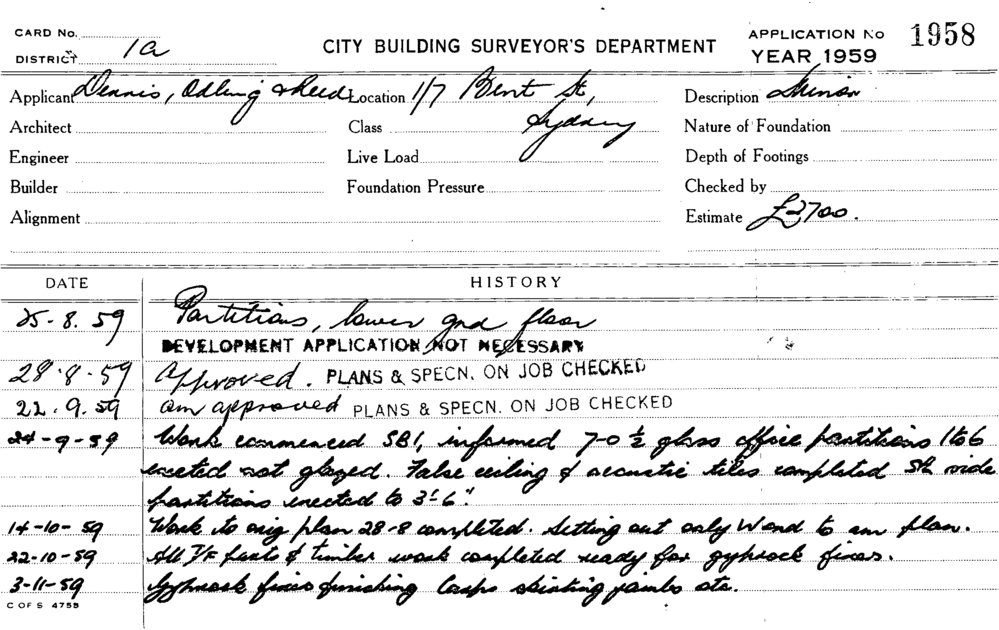 CARD No.
DISTRICT 1a
CITY BUILDING SURVEYOR'S DEPARTMENT
APPLICATION No 1958
YEAR 1959
Applicant Dennis, Odling & Reed Location 1/7 Bent St, Sydney Description Minor
Architect Class Nature of Foundation
Engineer Live Load Depth of Footings
Builder Foundation Pressure Checked by
Alignment Estimate £2700.
DATE HISTORY
25-8.59 Partitions, lower gnd floor
DEVELOPMENT APPLICATION NOT NECESSARY
28.8.59 Approved. PLANS & SPECN. ON JOB CHECKED
22.9.59 am approved PLANS & SPECN. ON JOB CHECKED
24-9-59 Work commenced SB1, informed 7-0 ½ glass office partitions 1 to 6
erected not glazed. False ceiling of accoustic tiles completed Sth side
partitions erected to 3'-6".
14-10-59 Work to orig plan 28-8 completed. Setting out only W end to am plan.
22-10-59 All T/F parts of timber work completed ready for gyprock fixers.
3-11-59 Gyprock fixers finishing skirting jambs etc.
C OF S 4755